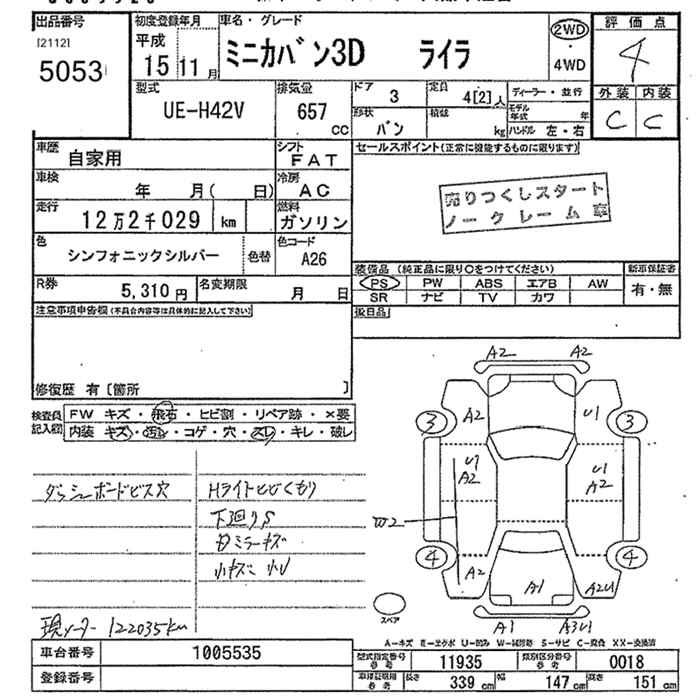 出品番号
[2112]
5053
初度登録年月
平成
15 11月
車名・グレード
ミニカバン3D ライラ
2WD
・
4WD
評価点
4
外装 内装
C C
型式
UE-H42V
排気量
657
CC
ドア 3
定員 4[2]人
ディーラー・並行
形状 バン
積載 kg
モデル年式 年
ハンドル 左・右
車歴 自家用
シフト FAT
車検 年 月( 日)
冷房 AC
走行 12万2千029 km
燃料 ガソリン
色 シンフォニックシルバー
色替
色コード A26
R券 5,310円
名変期限 月 日
セールスポイント(正常に機能するものに限ります)
売りつくしスタート
ノークレーム車
装備品 (純正品に限り○をつけてください)
PS PW ABS エアB AW
SR ナビ TV カワ
新車保証書
有・無
扱日品
注意事項申告欄(不具合内容等は具体的に記入して下さい)
修復歴 有〔箇所 〕
検査員記入欄
FW キズ・飛石・ヒビ割・リペア跡・×要
内装 キズ・汚レ・コゲ・穴・スレ・キレ・破レ
ダッシュボードビス穴
Hライトヒビくもり
下廻りS
ミラーキズ
小キズ 小U
現メーター 122035km
A2 A2
A2 U1
3 3
U1 A2
U1 A2
W2
4 4
A2 A1 A2U1
A1 A3U1
スペア
A-キズ E-エクボ U-凹み W-補修跡 S-サビ C-腐食 XX-交換済
車台番号 1005535
登録番号
型式指定番号 参考 11935
類別区分番号 参考 0018
車検証載用 参考
長さ 339 cm
幅 147 cm
高さ 151 cm